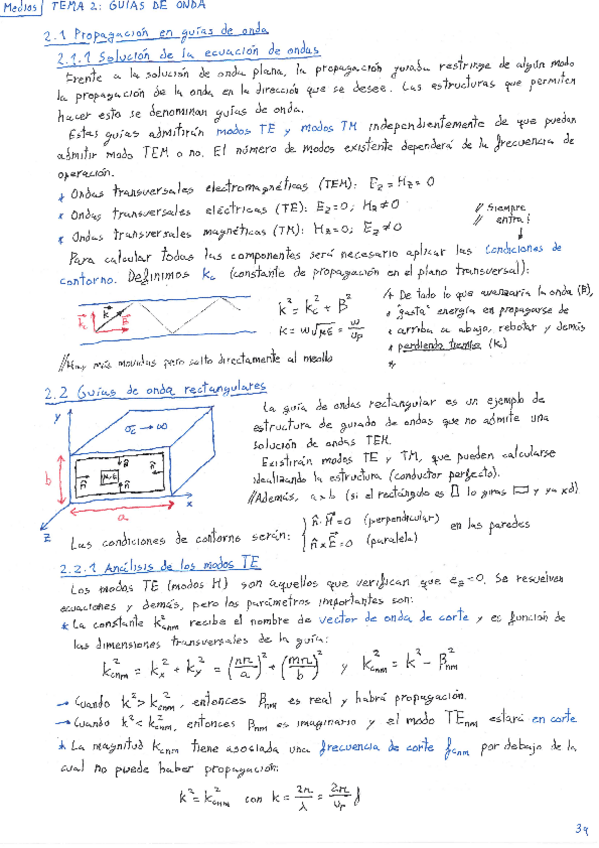 Medios TEMA 2: GUÍAS DE ONDA
2.1 Propagación en guías de onda
2.1.1 Solución de la ecuación de ondas
Frente a la solución de onda plana, la propagación guiada restringe de algún modo
la propagación de la onda en la dirección que se desee. Las estructuras que permiten
hacer esto se denominan guías de onda.
Estas guías admitirán modos TE y modos TM independientemente de que puedan
admitir modo TEM o no. El número de modos existente dependerá de la frecuencia de
operación.
* Ondas transversales electromagnéticas (TEM): Ez = Hz = 0
* Ondas transversales eléctricas (TE): Ez = 0; Hz ≠ 0
* Ondas transversales magnéticas (TM): Hz = 0; Ez ≠ 0
// Siempre
// entra!
Para calcular todas las componentes será necesario aplicar las condiciones de
contorno. Definimos kc (constante de propagación en el plano transversal):
k² = kc² + β²
k = ω√με = ω/vp
/* De todo lo que avanzaría la onda (β),
* "gasta" energía en propagarse de
* arriba a abajo, rebotar y demás
* perdiendo tiempo (kc)
*/
//Hay más movidas pero salto directamente al meollo
2.2 Guías de onda rectangulares
y
σc → ∞
b
n̂
n̂
n̂
n̂
μ, ε
a
x
z
La guía de ondas rectangular es un ejemplo de
estructura de guiado de ondas que no admite una
solución de ondas TEM.
Existirán modos TE y TM, que pueden calcularse
idealizando la estructura (conductor perfecto).
//Además, a>b (si el rectángulo es ▯ lo giras ▭ y ya xd)
Las condiciones de contorno serán: { n̂·H = 0 (perpendicular)
n̂×E = 0 (paralela) en las paredes
2.2.1 Análisis de los modos TE
Los modos TE (modos H) son aquellos que verifican que ez=0. Se resuelven
ecuaciones y demás, pero los parámetros importantes son:
* La constante k²cnm recibe el nombre de vector de onda de corte y es función de
las dimensiones transversales de la guía:
k²cnm = kx² + ky² = (nπ/a)² + (mπ/b)² y k²cnm = k² - β²nm
→ Cuando k² > k²cnm, entonces βnm es real y habrá propagación.
→ Cuando k² < k²cnm, entonces βnm es imaginario y el modo TEnm estará en corte
* La magnitud kcnm tiene asociada una frecuencia de corte fcnm por debajo de la
cual no puede haber propagación:
k² = k²cnm con k = 2π/λ = 2π/vp f